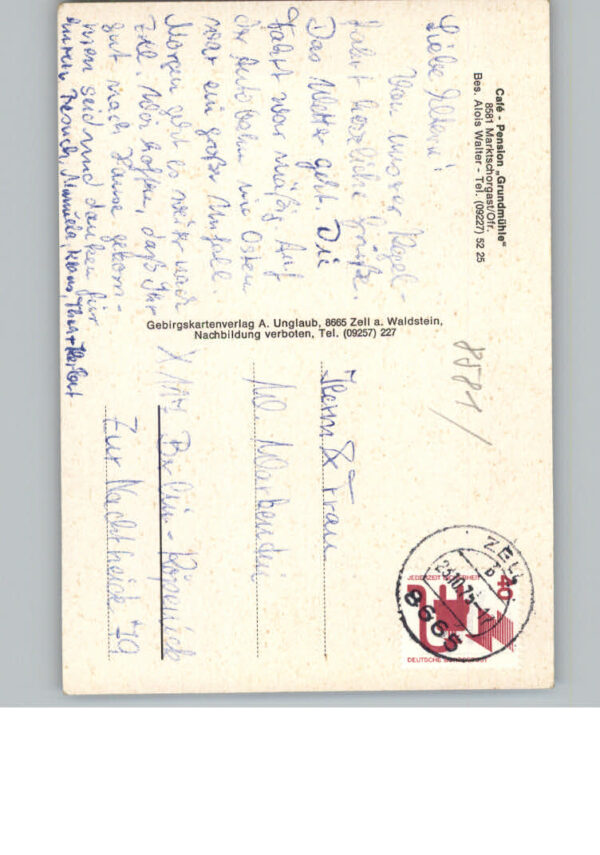 Café - Pension „Grundmühle"
8581 Marktschorgast/Ofr.
Bes. Alois Walter - Tel. (09227) 52 25
Liebe Eltern!
Von unserer Kegel-
fahrt herzliche Grüße.
Das Wetter geht. Die
Fahrt war mäßig. Auf
der Autobahn nie Osten
war ein großer Unfall.
Morgen geht es weiter nach
Zell. Wir hoffen, daß Ihr
gut nach Hause gekom-
men seid und danken für
Euren Besuch. Manuela, Klaus,
Gebirgskartenverlag A. Unglaub, 8665 Zell a. Waldstein,
Nachbildung verboten, Tel. (09257) 227
8581/
Herrn & Frau
X 117 Berlin - Köpenick
Zur Nachtheide 79
ZELL
b
23.10.75-17
8665
JEDERZEIT SICHERHEIT
40
DEUTSCHE BUNDESPOST